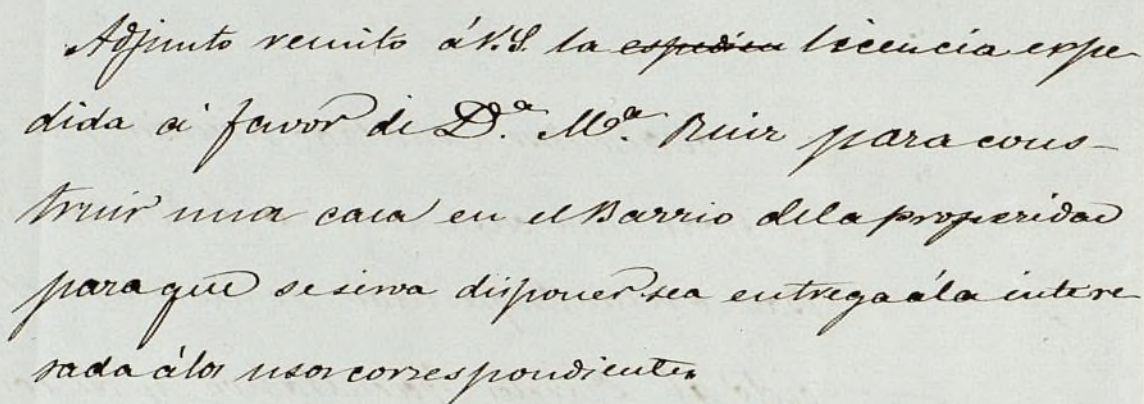 Adjunto remito á V.S. la espedica licencia expe-
dida á favor de D.ª M.ª Ruiz para cons-
truir una casa en el Barrio dela properidad
para que se sirva disponer sea entrega ála intere
sada álos usos correspondientes